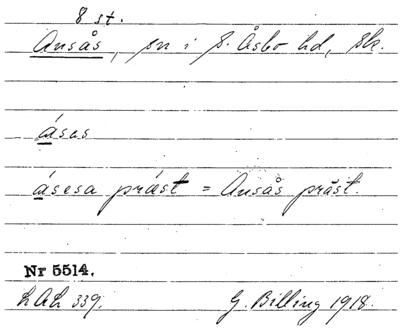 8 st.
Ausås, sn i S. Åsbo hd, Sk.
åsas
åsesa präst = Ausås präst.
Nr 5514.
G. Billing 1918.